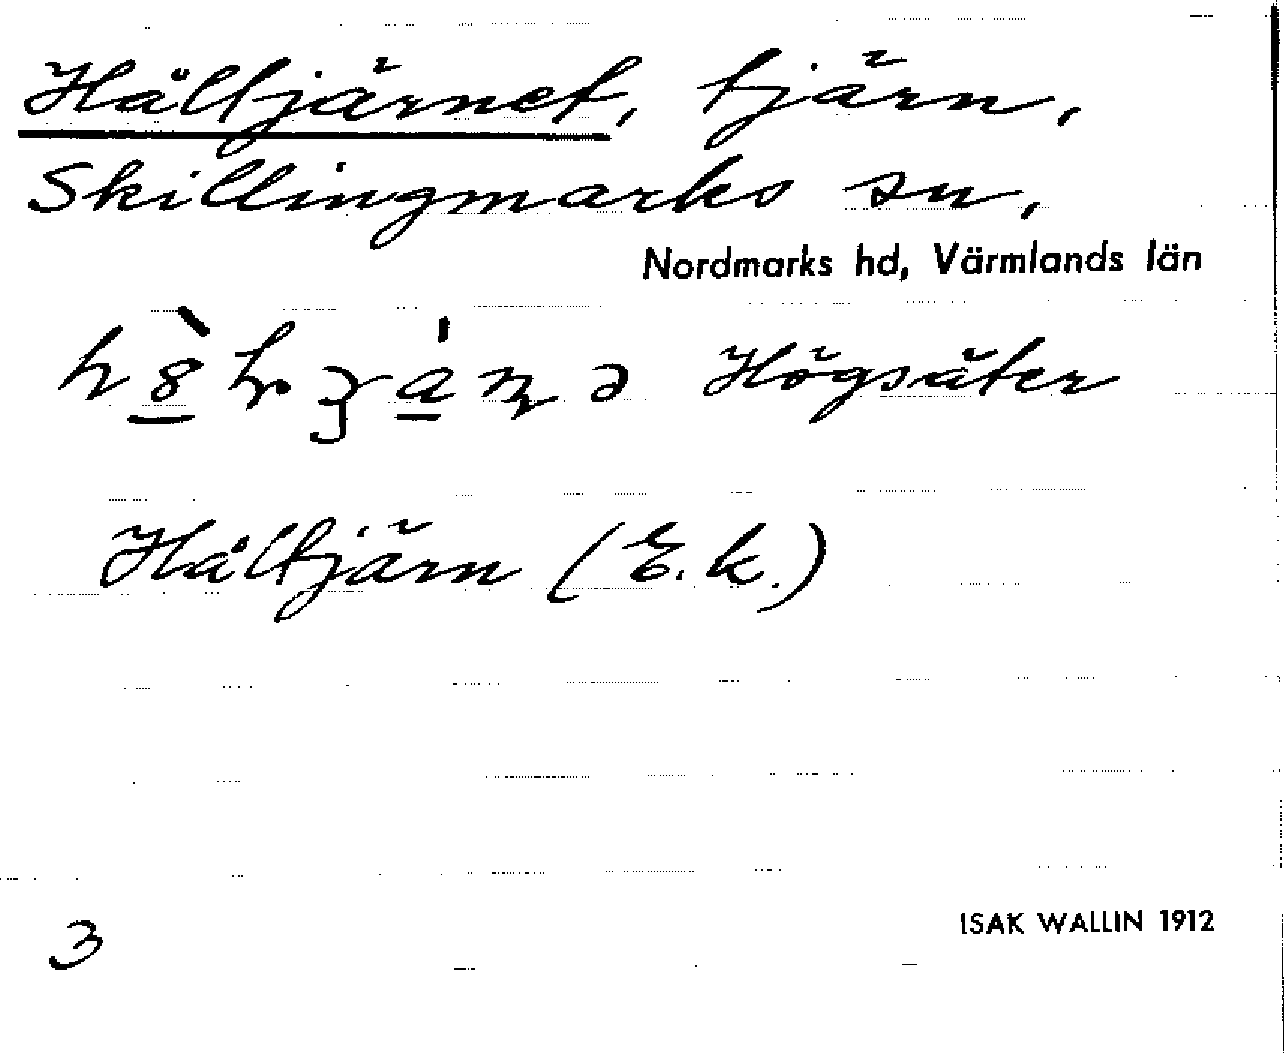 Håltjärnet, tjärn,
Skillingmarks sn,
Nordmarks hd, Värmlands län
Högsäter
Håltjärn (E.k.)
3
ISAK WALLIN 1912